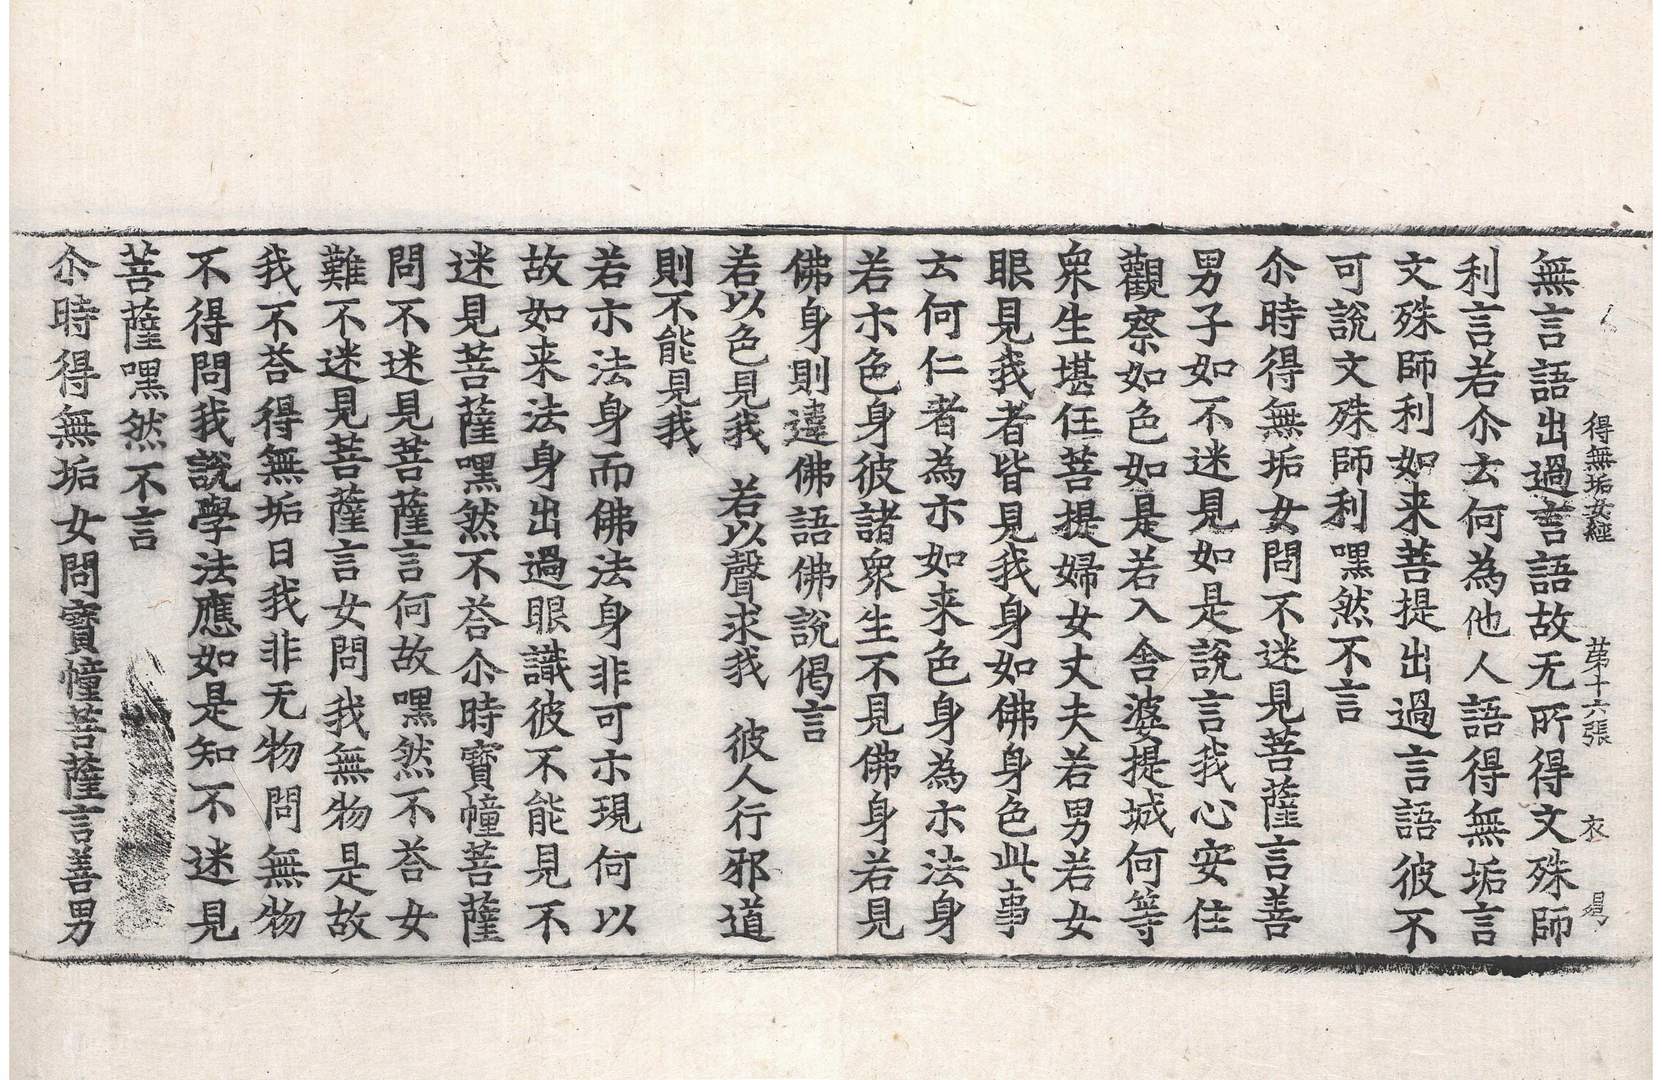 得無垢女經 苐十六張 衣
無言語出過言語故无所得文殊師
利言若尒去何為他人語得無垢言
文殊師利如来菩提出過言語彼不
可說文殊師利嘿然不言
尒時得無垢女問不迷見菩薩言善
男子如不迷見如是說言我心安住
觀察如色如是若入舍婆提城何等
衆生堪任菩提婦女丈夫若男若女
眼見我者皆見我身如佛身色此事
去何仁者為示如来色身為示法身
若示色身彼諸衆生不見佛身若見
佛身則違佛語佛說偈言
若以色見我 若以聲求我 彼人行邪道
則不能見我
若示法身而佛法身非可示現何以
故如来法身出過眼識彼不能見不
迷見菩薩嘿然不荅尒時寶幢菩薩
問不迷見菩薩言何故嘿然不荅女
難不迷見菩薩言女問我無物是故
我不荅得無垢曰我非无物問無物
不得問我說學法應如是知不迷見
菩薩嘿然不言
尒時得無垢女問寶幢菩薩言善男